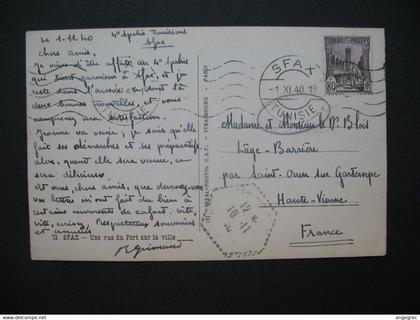 Le 1.11.40 4e Spahis Tunisiens
Sfax
Chers amis,
Je viens d'être affecté au 4e Spahis
qui tient garnison à Sfax, et je
reste dans l'armée ce sont là
deux bonnes nouvelles, et vous
comprenez ma satisfaction.
Jeanne va venir; je sais qu'elle
fait ses démarches et ses préparatifs
alors, quand elle sera venue, ce
sera délicieux.
Et vous, chers amis, que devenez-vous
vos lettres m'ont fait du bien à
certains moments de cafard. Vite,
vite, écrivez. Respectueux souvenirs
et amitiés
73 SFAX - Une vue du Port sur la ville
R Grimaud
PHOTO C.A.P. - STRASBOURG - PARIS
TUNISIE POSTES
80 c
SFAX
-1 XI 40. 19
TUNISIE
Madame et Monsieur Le Blois
Lâge-Barrière
par Saint-Ouen sur Gartempe
Haute-Vienne
France
12 *
10-11
angegrec